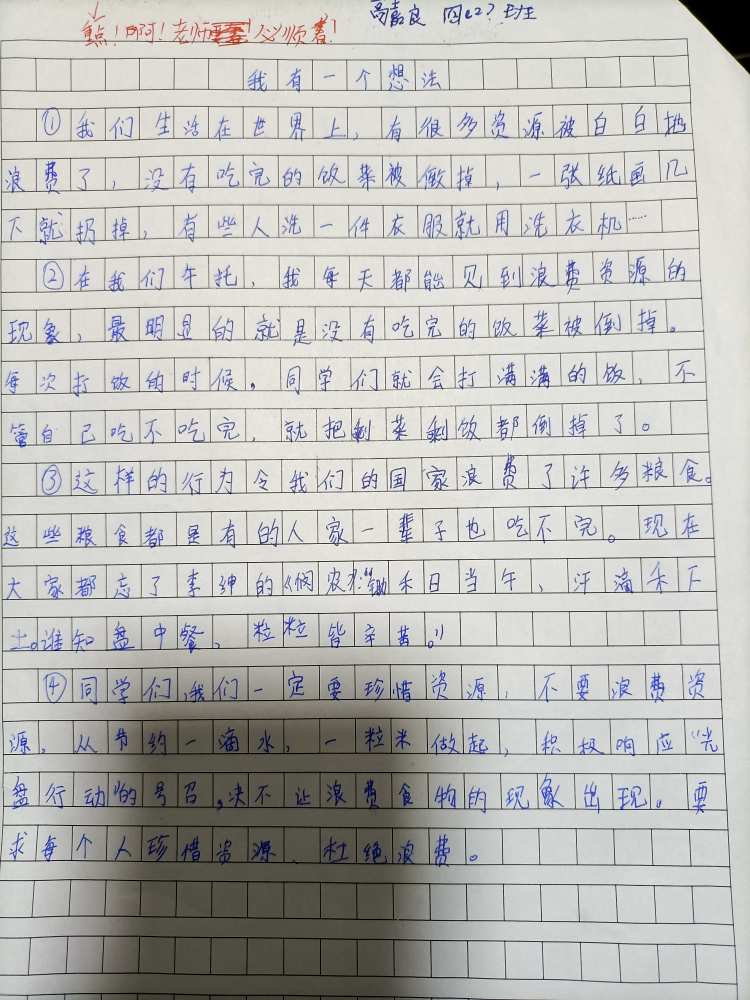 高嘉良 四(2)班
我有一个想法
①我们生活在世界上，有很多资源被白白地
浪费了，没有吃完的饭菜被倒掉，一张纸画几
下就扔掉，有些人洗一件衣服就用洗衣机……
②在我们午托，我每天都能见到浪费资源的
现象，最明显的就是没有吃完的饭菜被倒掉。
每次打饭的时候。同学们就会打满满的饭，不
管自己吃不吃完，就把剩菜剩饭都倒掉了。
③这样的行为令我们的国家浪费了许多粮食。
这些粮食都是有的人家一辈子也吃不完。现在
大家都忘了李绅的《悯农》：“锄禾日当午，汗滴禾下
土。谁知盘中餐，粒粒皆辛苦。”
④同学们，我们一定要珍惜资源，不要浪费资
源，从节约一滴水，一粒米做起，积极响应“光
盘行动”的号召，决不让浪费食物的现象出现。要
求每个人珍惜资源、杜绝浪费。